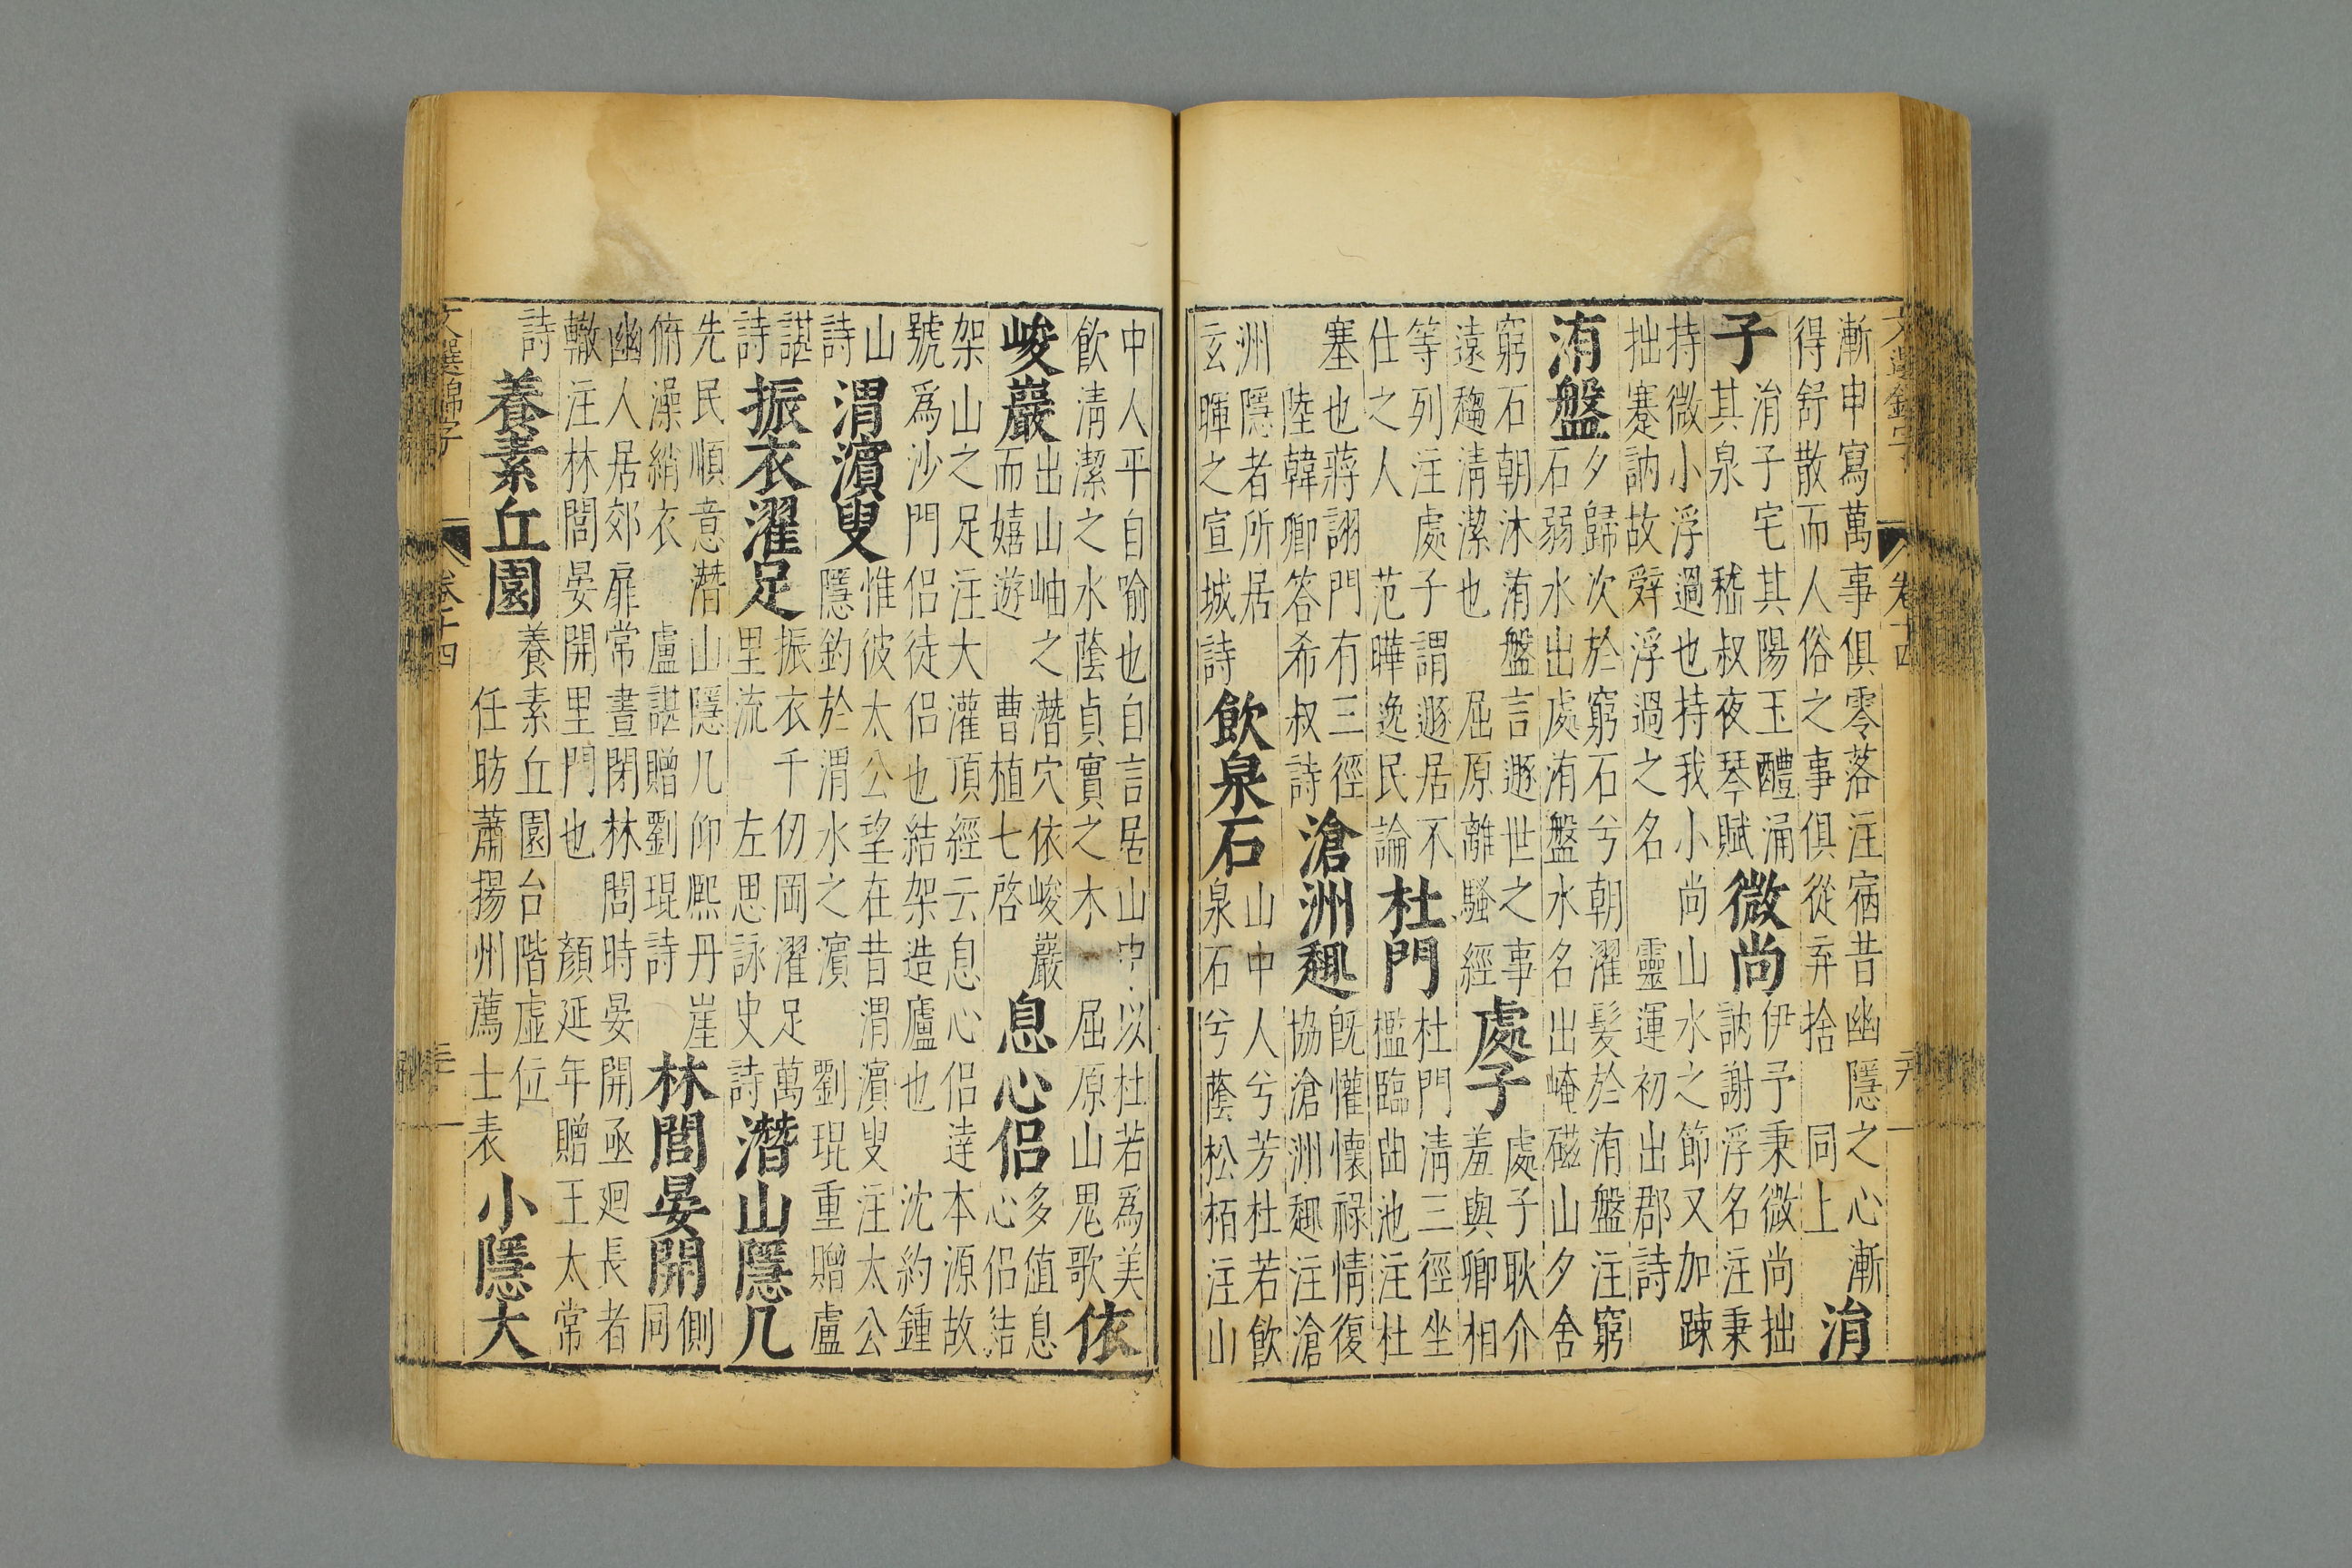 漸申寫萬事俱零落注宿昔幽隱之心漸
得舒散而人俗之事俱從弃捨 同上 涓
子 涓子宅其陽玉醴涌
其泉 嵇叔夜琴賦 微尚 伊予秉微尚拙
訥謝浮名注秉
持微小浮過也持我小尚山水之節又加踈
拙蹇訥故辤浮過之名 靈運初出郡詩
洧盤 夕歸次於窮石兮朝濯髪於洧盤注窮
石弱水出處洧盤水名出崦磁山夕舍
窮石朝沐洧盤言遯世之事
遠趨清潔也 屈原離騷經 處子 處子耿介
羞與卿相
等列注處子謂遯居不
仕之人 范曄逸民論 杜門 杜門清三徑坐
檻臨曲池注杜
塞也蔣詡門有三徑
陸韓卿答希叔詩 滄洲趣 既懽懷祿情復
協滄洲趣注滄
洲隱者所居
玄暉之宣城詩 飲泉石 山中人兮芳杜若飲
泉石兮蔭松栢注山
中人平自喻也自言居山中以杜若爲美
飲清潔之水蔭貞實之木 屈原山鬼歌 依
峻巖 出山岫之潛穴依峻巖
而嬉遊 曹植七啓 息心侣 多值息
心侣結
架山之足注大灌頂經云息心侣達本源故
號爲沙門侣徒侣也結架造廬也 沈約鍾
山
詩 渭濵叟 惟彼太公望在昔渭濵叟注太公
隱釣於渭水之濵 劉琨重贈盧
諶
詩 振衣濯足 振衣千仞岡濯足萬
里流 左思詠史詩 潛山隱几
先民順意潛山隱几仰熈丹崖
俯澡綃衣 盧諶贈劉琨詩 林閭晏開 側
同
幽人居郊扉常晝閉林閭時晏開亟廻長者
轍注林閭晏開里門也 顏延年贈王太常
詩 養素丘園 養素丘園台階虚位
任昉蕭揚州薦士表 小隱大
文選錦字 卷十四